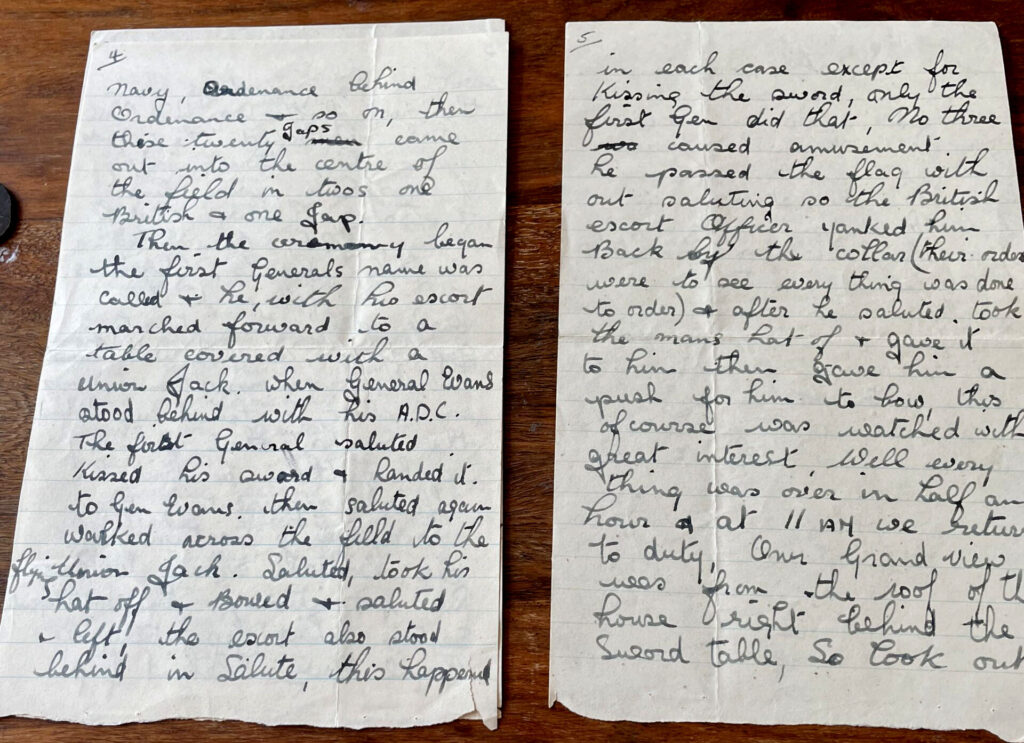 4
Navy, Ordenance behind
Ordenance & so on, then
these twenty Japs men came
out into the centre of
the field in twos one
British & one Jap.
Then the ceremony began
the first Generals name was
called & he, with his escort
marched forward to a
table covered with a
Union Jack. when General Evans
stood behind with his A.D.C.
The first General saluted
Kissed his sword & handed it.
to Gen Evans. then saluted again
walked across the field to the
flying Union Jack. Saluted, took his
hat off & Bowed & saluted
& left, the escort also stood
behind in Salute, this happened
5
in each case except for
Kissing the sword, only the
first Gen did that, No three
caused amusement
he passed the flag with
out saluting so the British
escort Officer yanked him
Back by the collar (their order
were to see every thing was done
to order) & after he saluted. took
the mans hat of & gave it
to him then gave him a
push for him to bow, this
of course was watched with
great interest, Well every
thing was over in half an
hour & at 11 AM we return
to duty, Our Grand view
was from the roof of th
house right behind the
Sword table, So look out